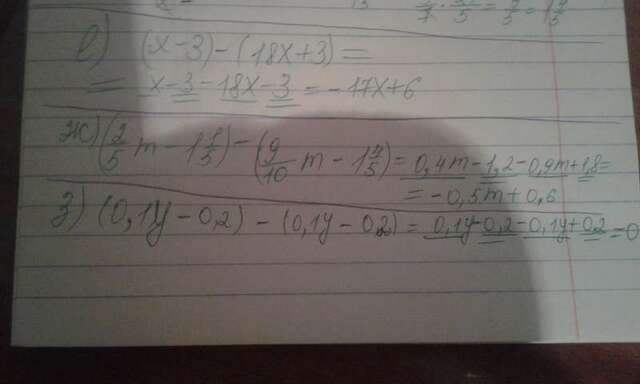 е) (x-3)-(18x+3)=
= x-3-18x-3=-17x+6
ж) (2/5 m - 1 1/5) - (9/10 m - 1 4/5) = 0,4m-1,2-0,9m+1,8=
= -0,5m+0,6
з) (0,1y-0,2) - (0,1y-0,2) = 0,1y-0,2-0,1y+0,2=0